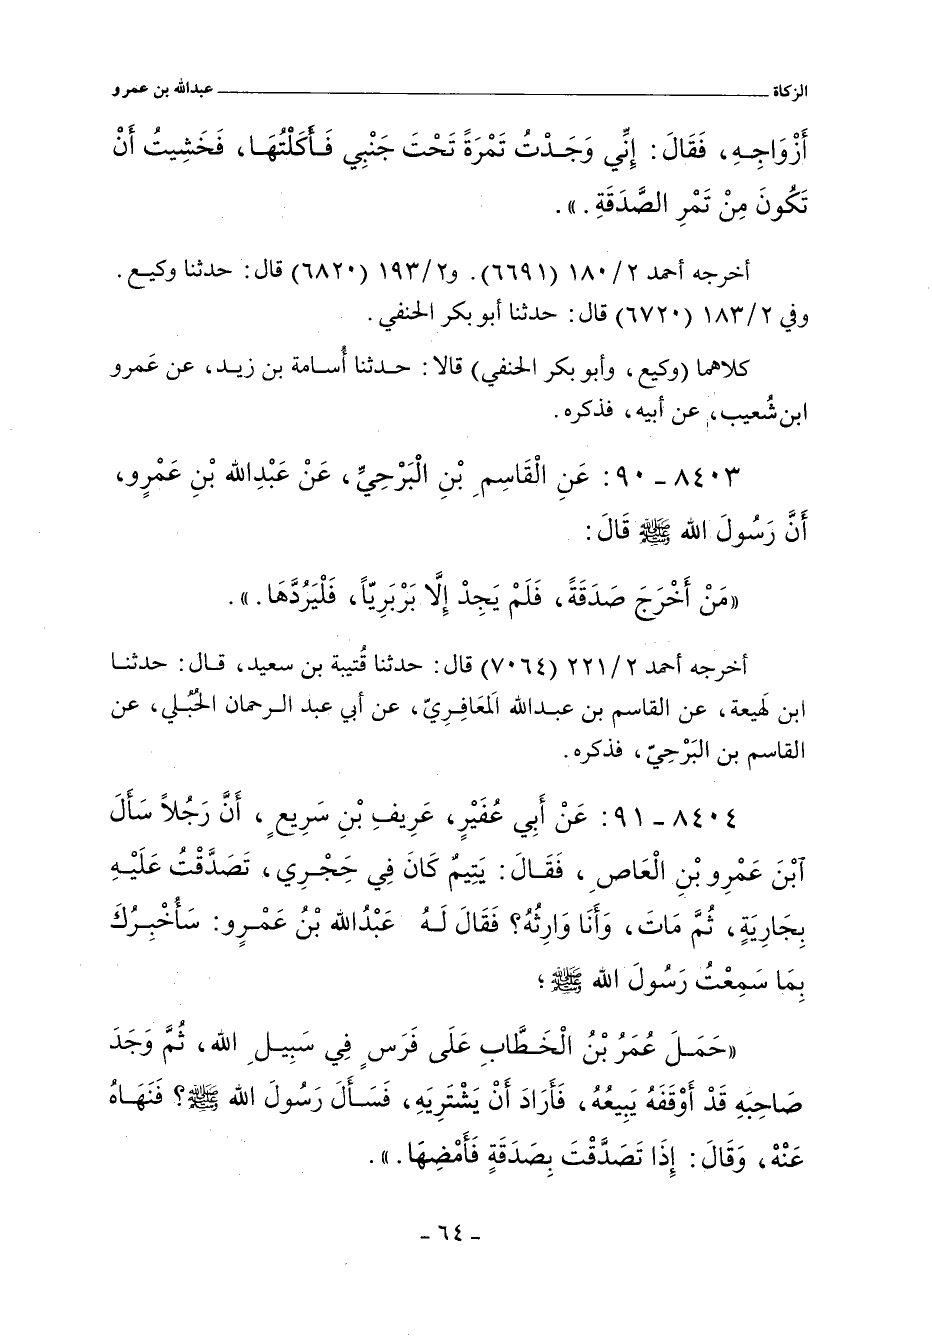 الزكاة ــــــ عبدالله بن عمرو
أَزْوَاجِهِ، فَقَالَ: إِنِّي وَجَدْتُ تَمْرَةً تَحْتَ جَنْبِي فَأَكَلْتُهَا، فَخَشِيتُ أَنْ
تَكُونَ مِنْ تَمْرِ الصَّدَقَةِ.».
أخرجه أحمد ٢/١٨٠ (٦٦٩١). و٢/١٩٣ (٦٨٢٠) قال: حدثنا وكيع.
وفي ٢/١٨٣ (٦٧٢٠) قال: حدثنا أبو بكر الحنفي.
كلاهما (وكيع، وأبو بكر الحنفي) قالا: حدثنا أُسامة بن زيد، عن عَمرو
ابن شُعيب، عن أبيه، فذكره.
٨٤٠٣ ـ ٩٠: عَنِ الْقَاسِمِ بْنِ الْبَرْحِيِّ، عَنْ عَبْدِالله بْنِ عَمْرٍو،
أَنَّ رَسُولَ الله ﷺ قَالَ:
«مَنْ أَخْرَجَ صَدَقَةً، فَلَمْ يَجِدْ إِلَّا بَرْبَرِيّاً، فَلْيَرُدَّهَا.».
أخرجه أحمد ٢/٢٢١ (٧٠٦٤) قال: حدثنا قُتيبة بن سعيد، قال: حدثنا
ابن لهَيعة، عن القاسم بن عبدالله المَعَافِرِيّ، عن أبي عبد الرحمان الحُبُلي، عن
القاسم بن البَرْحِيّ، فذكره.
٨٤٠٤ ـ ٩١: عَنْ أَبِي عُفَيْرٍ، عَرِيفِ بْنِ سَرِيعٍ، أَنَّ رَجُلاً سَأَلَ
آبْنَ عَمْرِو بْنِ الْعَاصِ، فَقَالَ: يَتِيمٌ كَانَ فِي حَجْرِي، تَصَدَّقْتُ عَلَيْهِ
بِجَارِيَةٍ، ثُمَّ مَاتَ، وَأَنَا وَارِثُهُ؟ فَقَالَ لَهُ عَبْدُالله بْنُ عَمْرٍو: سَأُخْبِرُكَ
بِمَا سَمِعْتُ رَسُولَ الله ﷺ؛
«حَمَلَ عُمَرُ بْنُ الْخَطَّابِ عَلَى فَرَسٍ فِي سَبِيلِ الله، ثُمَّ وَجَدَ
صَاحِبَهِ قَدْ أَوْقَفَهُ يَبِيعُهُ، فَأَرَادَ أَنْ يَشْتَرِيَهِ، فَسَأَلَ رَسُولَ الله ﷺ؟ فَنَهَاهُ
عَنْهُ، وَقَالَ: إِذَا تَصَدَّقْتَ بِصَدَقَةٍ فَأَمْضِهَا.».
ـ ٦٤ ـ